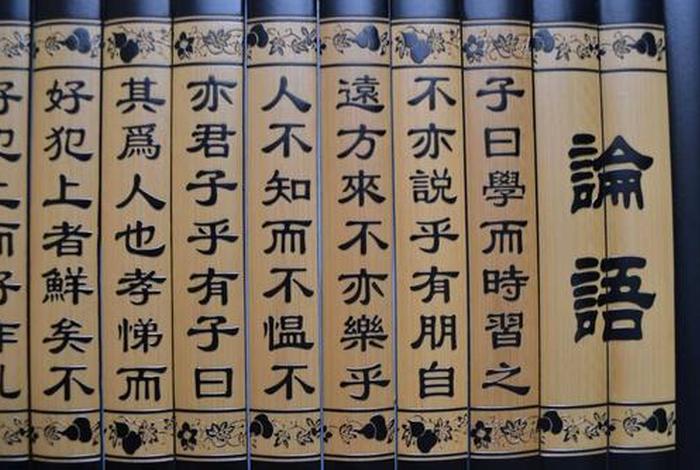 論語
子曰學而時習之
不亦説乎有朋自
遠方來不亦樂乎
人不知而不愠不
亦君子乎有子曰
其爲人也孝悌而
好犯上者鮮矣不